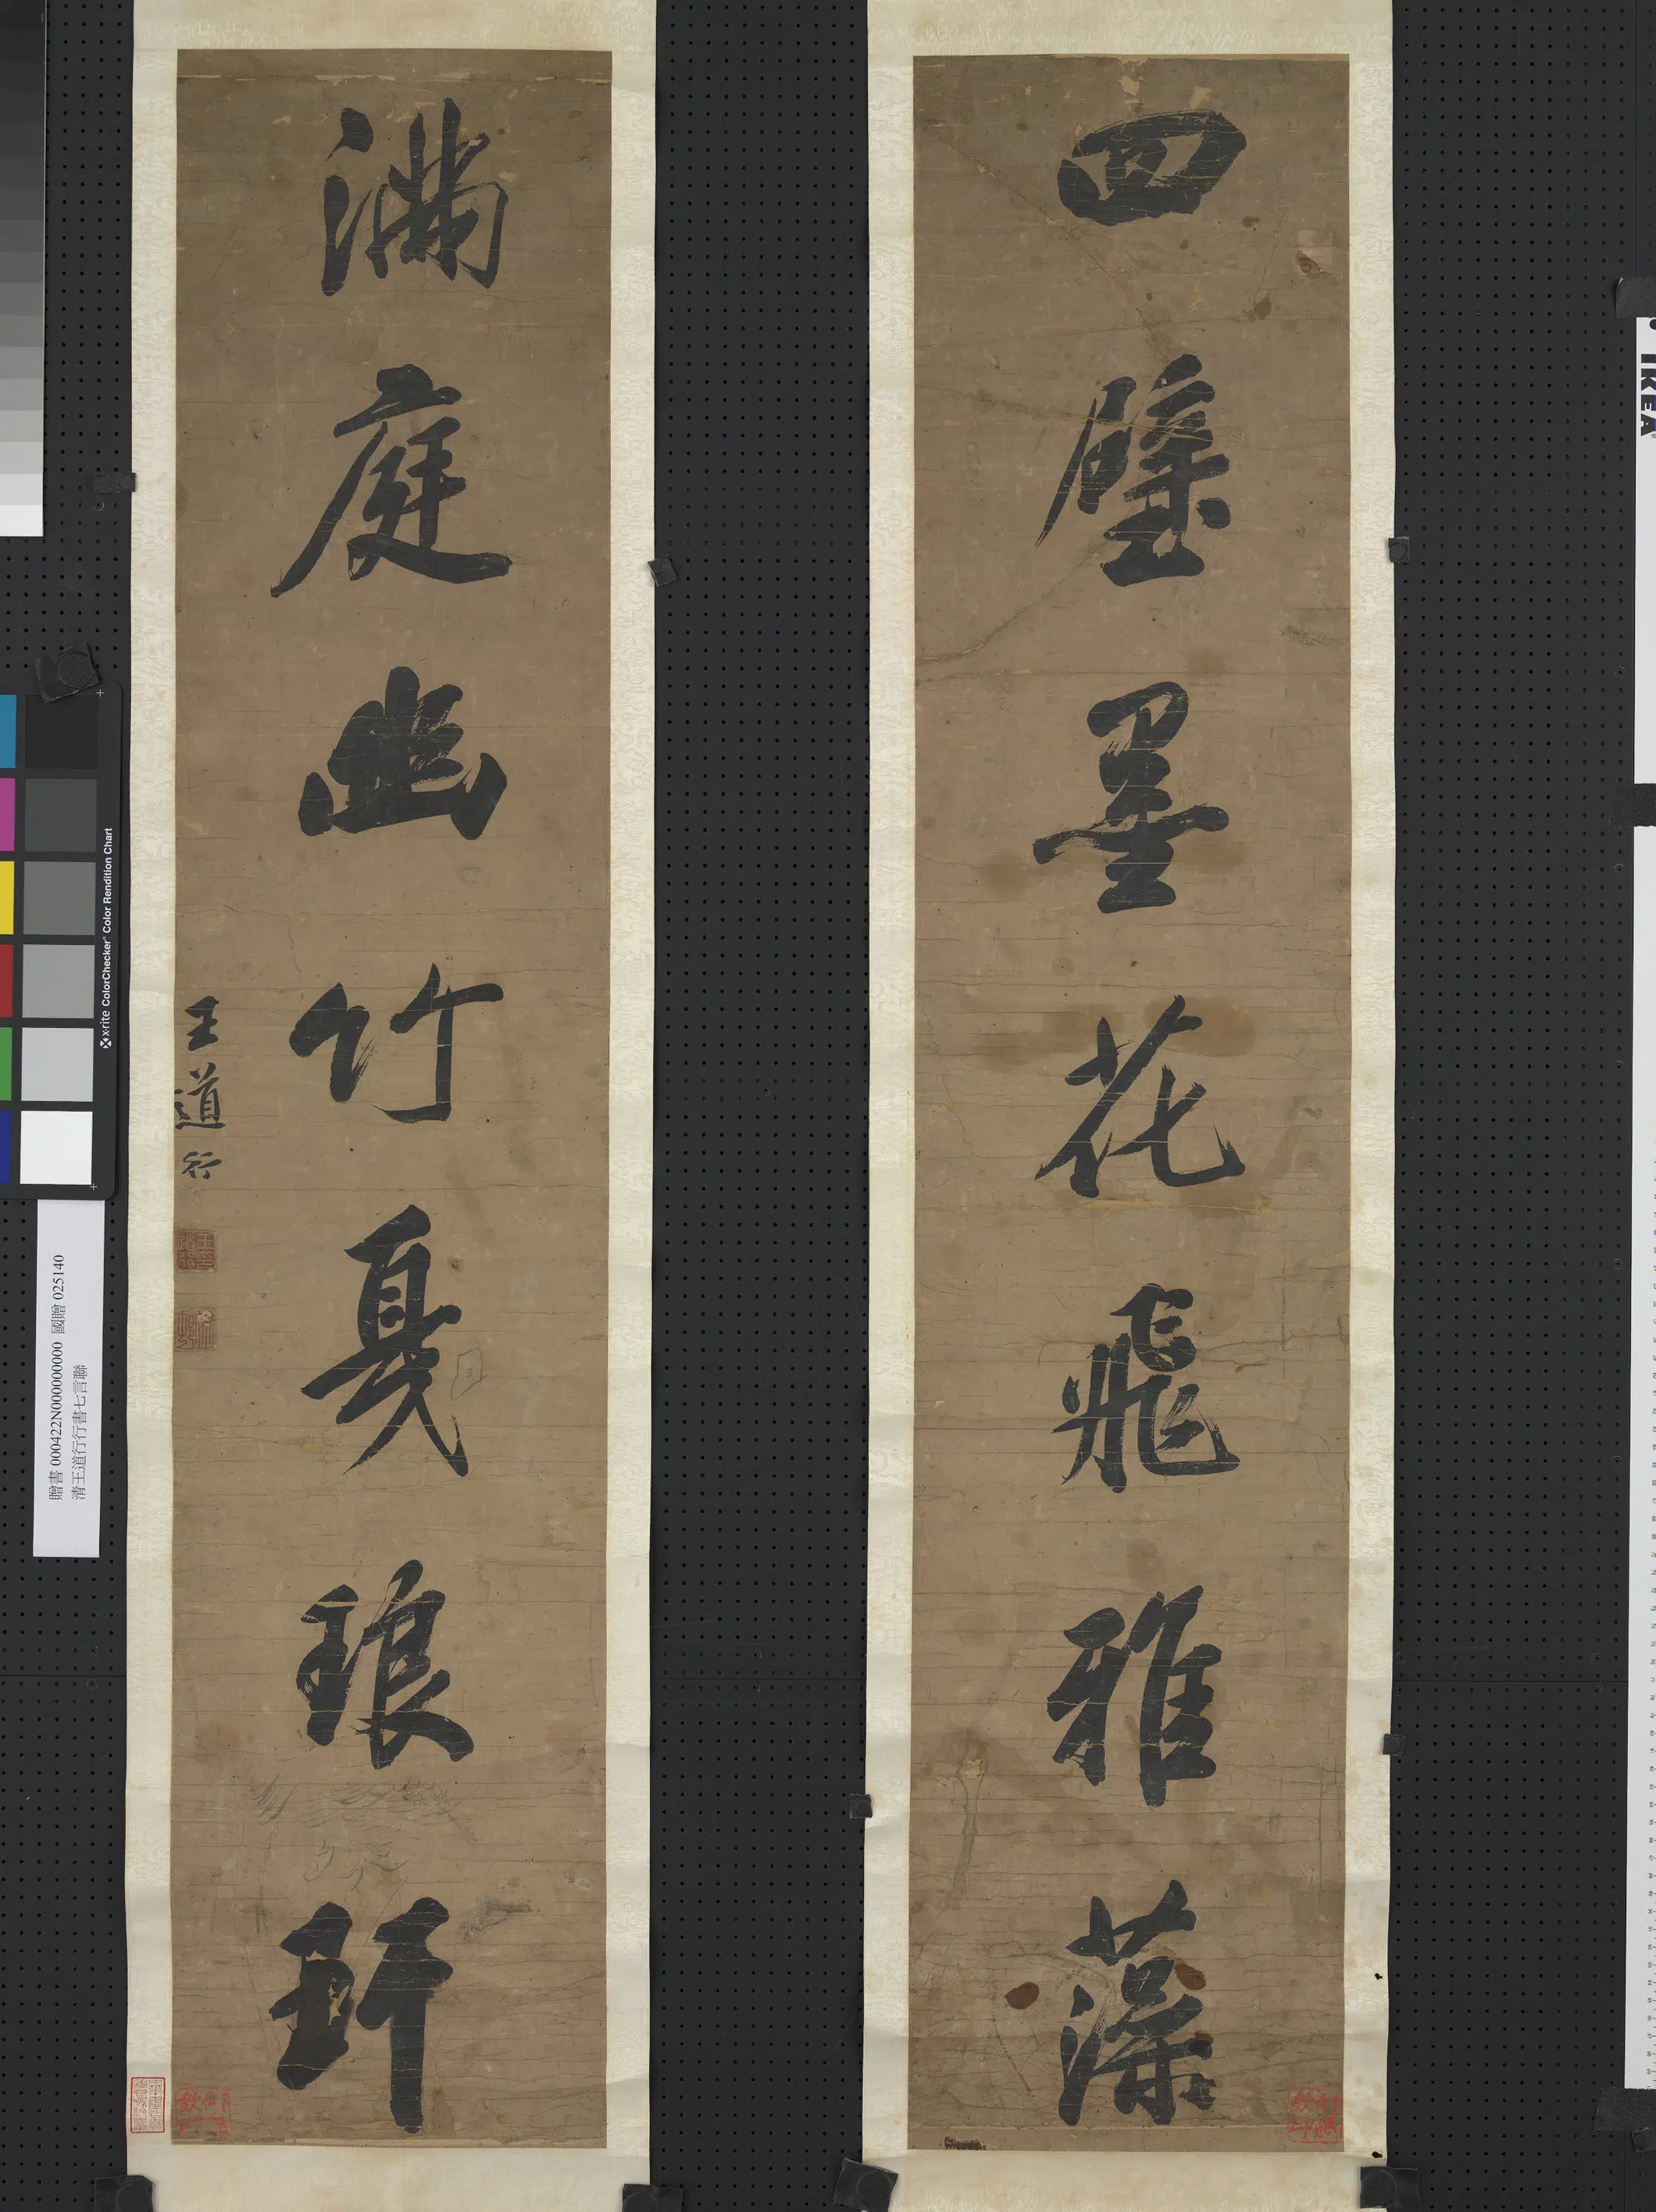 四壁墨花飛雅藻
滿庭幽竹戛琅玕
王道行
贈書 000422N000000000 國贈 025140
清王道行行書七言聯
x-rite ColorChecker Color Rendition Chart
IKEA